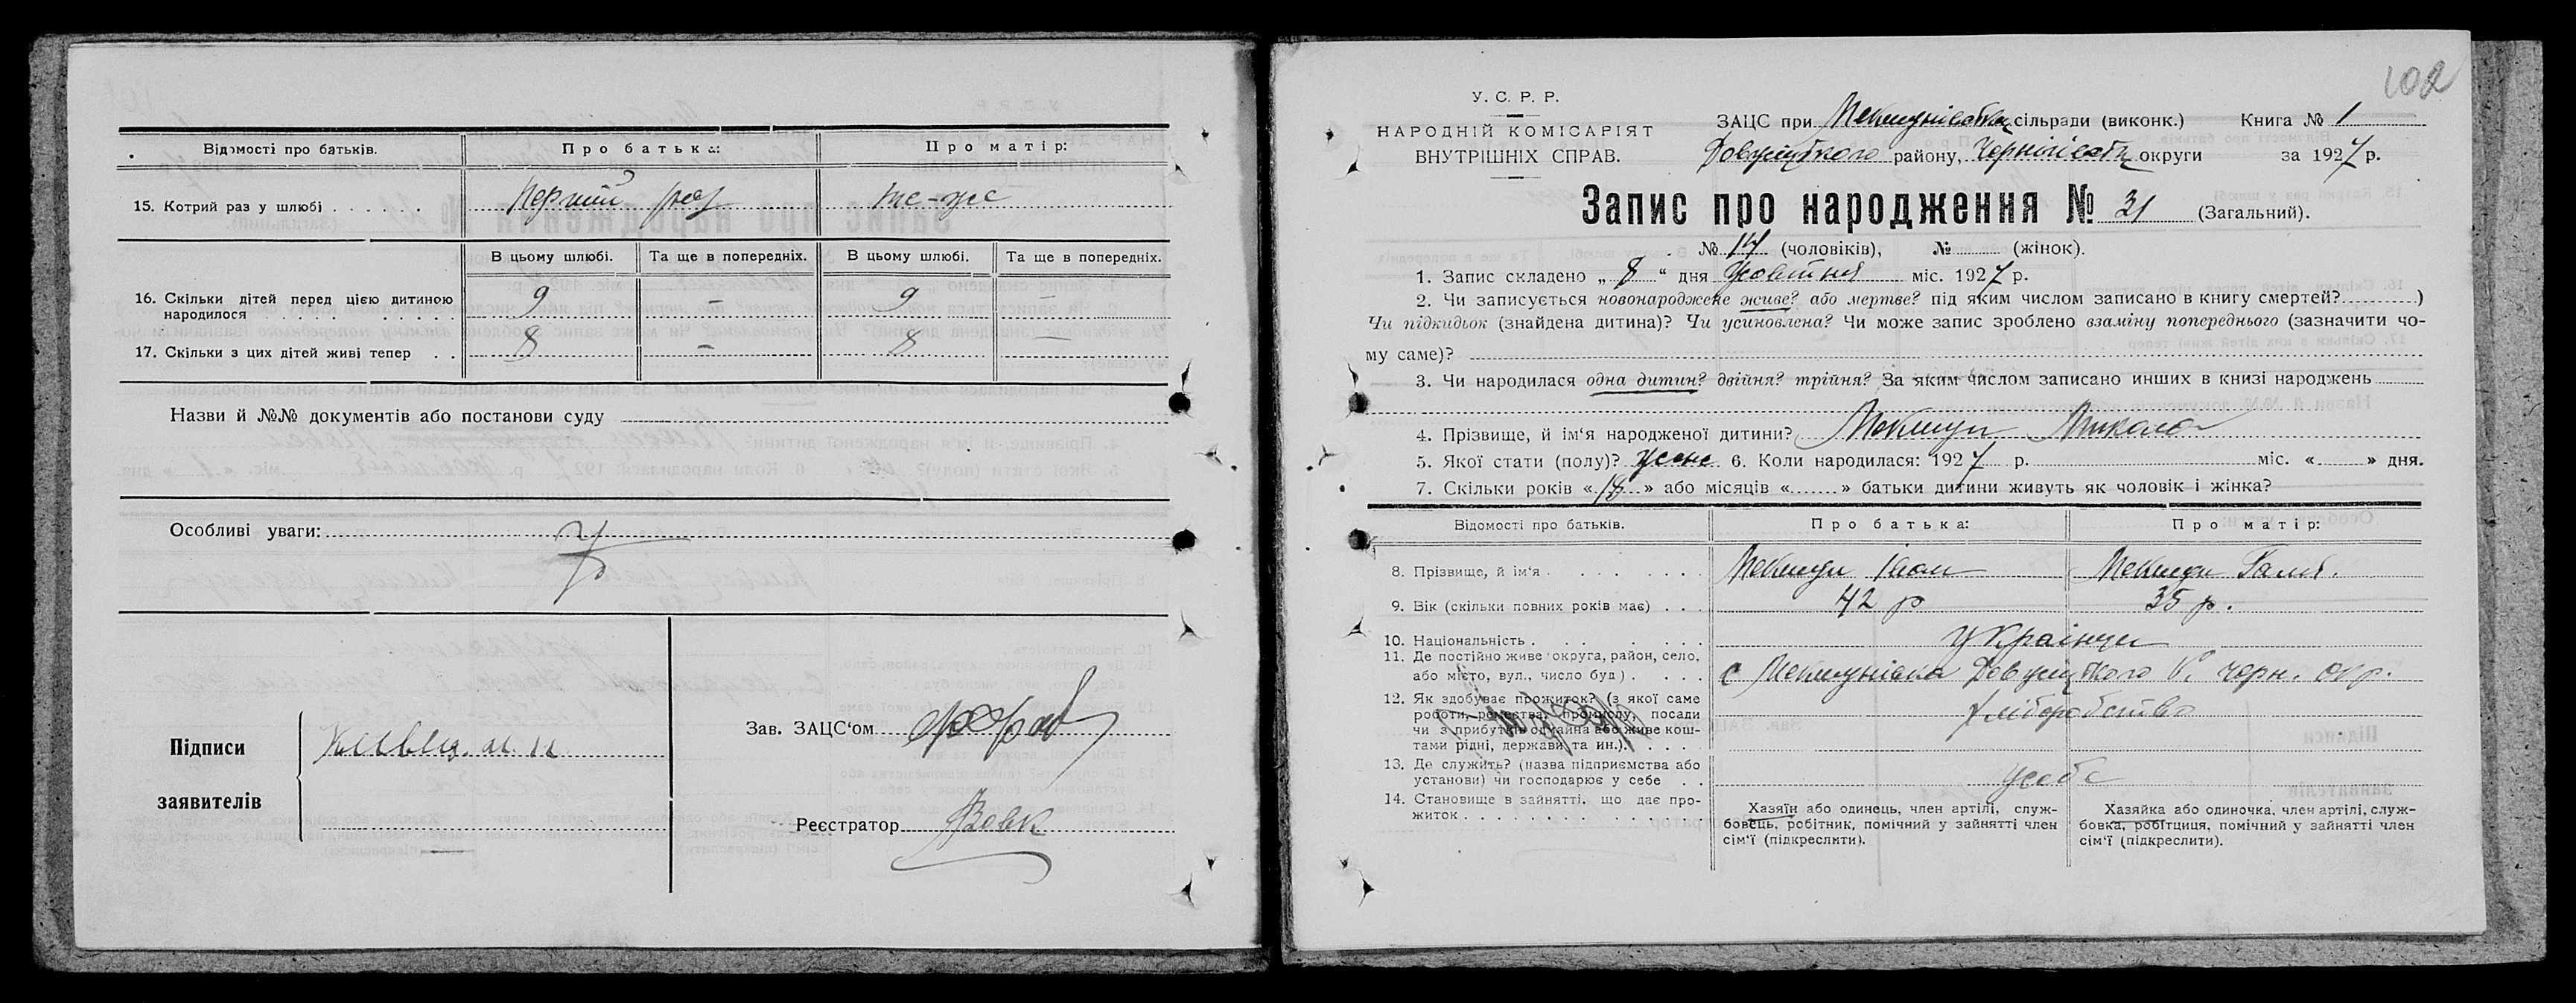 Відомості про батьків. Про батька: Про матір:
15. Котрий раз у шлюбі . . . . . . Перший раз те-же
В цьому шлюбі. Та ще в попередніх. В цьому шлюбі. Та ще в попередніх.
16. Скільки дітей перед цією дитиною
народилося . . . . . . . 9 – 9 –
17. Скільки з цих дітей живі тепер . . 8 – 8 –
Назви й №№ документів або постанови суду
Особливі уваги:
Підписи
заявителів
Зав. ЗАЦС'ом
Реєстратор Вовк
102
У. С. Р. Р.
НАРОДНІЙ КОМІСАРІЯТ
ВНУТРІШНІХ СПРАВ.
ЗАЦС при сільради (виконк.) Книга № 1
району, округи за 1927 р.
Запис про народження № 31 (Загальний).
№ 14 (чоловіків), № (жінок).
1. Запис складено „ 8 “ дня Жовтня міс. 1927 р.
2. Чи записується новонароджене живе? або мертве? під яким числом записано в книгу смертей? )
Чи підкидьок (знайдена дитина)? Чи усиновлена? Чи може запис зроблено взаміну попереднього (зазначити чо-
му саме)?
3. Чи народилася одна дитин? двійня? трійня? За яким числом записано инших в книзі народжень
4. Прізвище, й ім‘я народженої дитини? Микола
5. Якої стати (полу)? 6. Коли народилася: 1927 р. міс. « » дня.
7. Скільки років « 18 » або місяців « » батьки дитини живуть як чоловік і жінка?
Відомості про батьків. Про батька: Про матір:
8. Прізвище, й ім‘я . . . . . . .
9. Вік (скільки повних років має) . . . 42 р 35 р.
10. Національність . . . . . . . українци
11. Де постійно живе округа, район, село,
або місто, вул., число буд) . . . . с р. черн. окр.
12. Як здобуває прожиток? (з якої саме
роботи, ремества, промислу, посади хліборобство
чи з прибутків одмайна або живе кош-
тами рідні, держави та ин.). . . . .
13. Де служить? (назва підприємства або
установи) чи господарює у себе . . усебе
14. Становище в зайнятті, що дає про-
житок . . . . . . . . . . . .
Хазяїн або одинець, член артілі, служ-
бовець, робітник, помічний у зайнятті член
сім‘ї (підкреслити).
Хазяйка або одиночка, член артілі, служ-
бовка, робітциця, помічний у зайнятті член
сім‘ї (підкреслити).